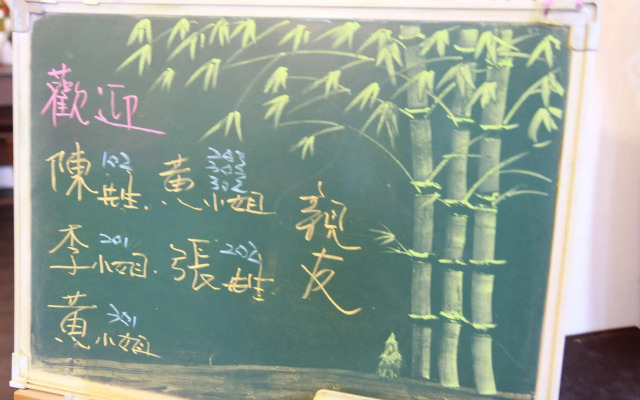 歡迎
陳 102 先生. 黃 203 303 302 小姐
李 201 小姐. 張 202 先生
黃 301 小姐
親友